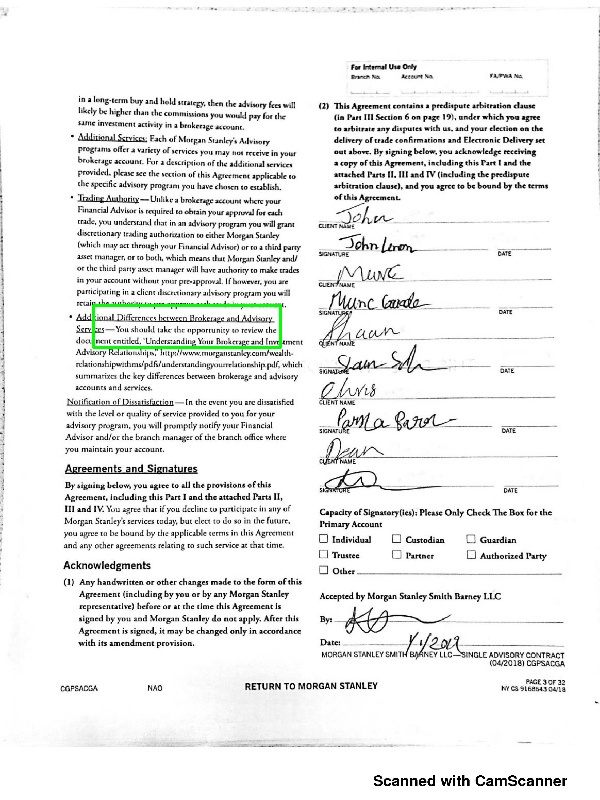 For Internal Use Only
Branch No. Account No. FA/PWA No.
in a long-term buy and hold strategy, then the advisory fees will
likely be higher than the commissions you would pay for the
same investment activity in a brokerage account.
• Additional Services: Each of Morgan Stanley's Advisory
programs offer a variety of services you may not receive in your
brokerage account. For a description of the additional services
provided, please see the section of this Agreement applicable to
the specific advisory program you have chosen to establish.
• Trading Authority—Unlike a brokerage account where your
Financial Advisor is required to obtain your approval for each
trade, you understand that in an advisory program you will grant
discretionary trading authorization to either Morgan Stanley
(which may act through your Financial Advisor) or to a third party
asset manager, or to both, which means that Morgan Stanley and/
or the third party asset manager will have authority to make trades
in your account without your pre-approval. If however, you are
participating in a client discretionary advisory program you will
retain the authority to pre-approve each trade in your account.
• Additional Differences between Brokerage and Advisory
Services—You should take the opportunity to review the
document entitled, "Understanding Your Brokerage and Investment
Advisory Relationships," http://www.morganstanley.com/wealth-
relationshipwithms/pdfs/understandingyourrelationship.pdf, which
summarizes the key differences between brokerage and advisory
accounts and services.
Notification of Dissatisfaction—In the event you are dissatisfied
with the level or quality of service provided to you for your
advisory program, you will promptly notify your Financial
Advisor and/or the branch manager of the branch office where
you maintain your account.
Agreements and Signatures
By signing below, you agree to all the provisions of this
Agreement, including this Part I and the attached Parts II,
III and IV. You agree that if you decline to participate in any of
Morgan Stanley's services today, but elect to do so in the future,
you agree to be bound by the applicable terms in this Agreement
and any other agreements relating to such service at that time.
Acknowledgments
(1) Any handwritten or other changes made to the form of this
Agreement (including by you or by any Morgan Stanley
representative) before or at the time this Agreement is
signed by you and Morgan Stanley do not apply. After this
Agreement is signed, it may be changed only in accordance
with its amendment provision.
(2) This Agreement contains a predispute arbitration clause
(in Part III Section 6 on page 19), under which you agree
to arbitrate any disputes with us, and your election on the
delivery of trade confirmations and Electronic Delivery set
out above. By signing below, you acknowledge receiving
a copy of this Agreement, including this Part I and the
attached Parts II, III and IV (including the predispute
arbitration clause), and you agree to be bound by the terms
of this Agreement.
John
CLIENT NAME
John
SIGNATURE DATE
Marc
CLIENT NAME
Marc
SIGNATURE DATE
Shaan
CLIENT NAME
SIGNATURE DATE
Chris
CLIENT NAME
SIGNATURE DATE
Dean
CLIENT NAME
SIGNATURE DATE
Capacity of Signatory(ies): Please Only Check The Box for the
Primary Account
☐ Individual ☐ Custodian ☐ Guardian
☐ Trustee ☐ Partner ☐ Authorized Party
☐ Other
Accepted by Morgan Stanley Smith Barney LLC
By:
Date: 1/1/2019
MORGAN STANLEY SMITH BARNEY LLC—SINGLE ADVISORY CONTRACT
(04/2018) CGPSACGA
CGPSACGA NAO RETURN TO MORGAN STANLEY
PAGE 3 OF 32
NY CS 9168643 04/18
Scanned with CamScanner